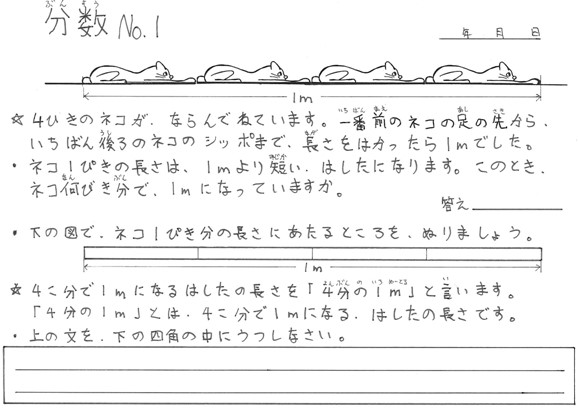 分数 No.1
年 月 日
1m
☆ 4ひきのネコが、ならんでねています。一番前のネコの足の先から、
いちばん後ろのネコのシッポまで、長さをはかったら1mでした。
・ネコ1ぴきの長さは、1mより短い、はしたになります。このとき、
ネコ何びき分で、1mになっていますか。
答え
・下の図で、ネコ1ぴき分の長さにあたるところを、ぬりましょう。
1m
☆ 4こ分で1mになるはしたの長さを「4分の1m」と言います。
「4分の1m」とは、4こ分で1mになる、はしたの長さです。
・上の文を、下の四角の中にうつしなさい。